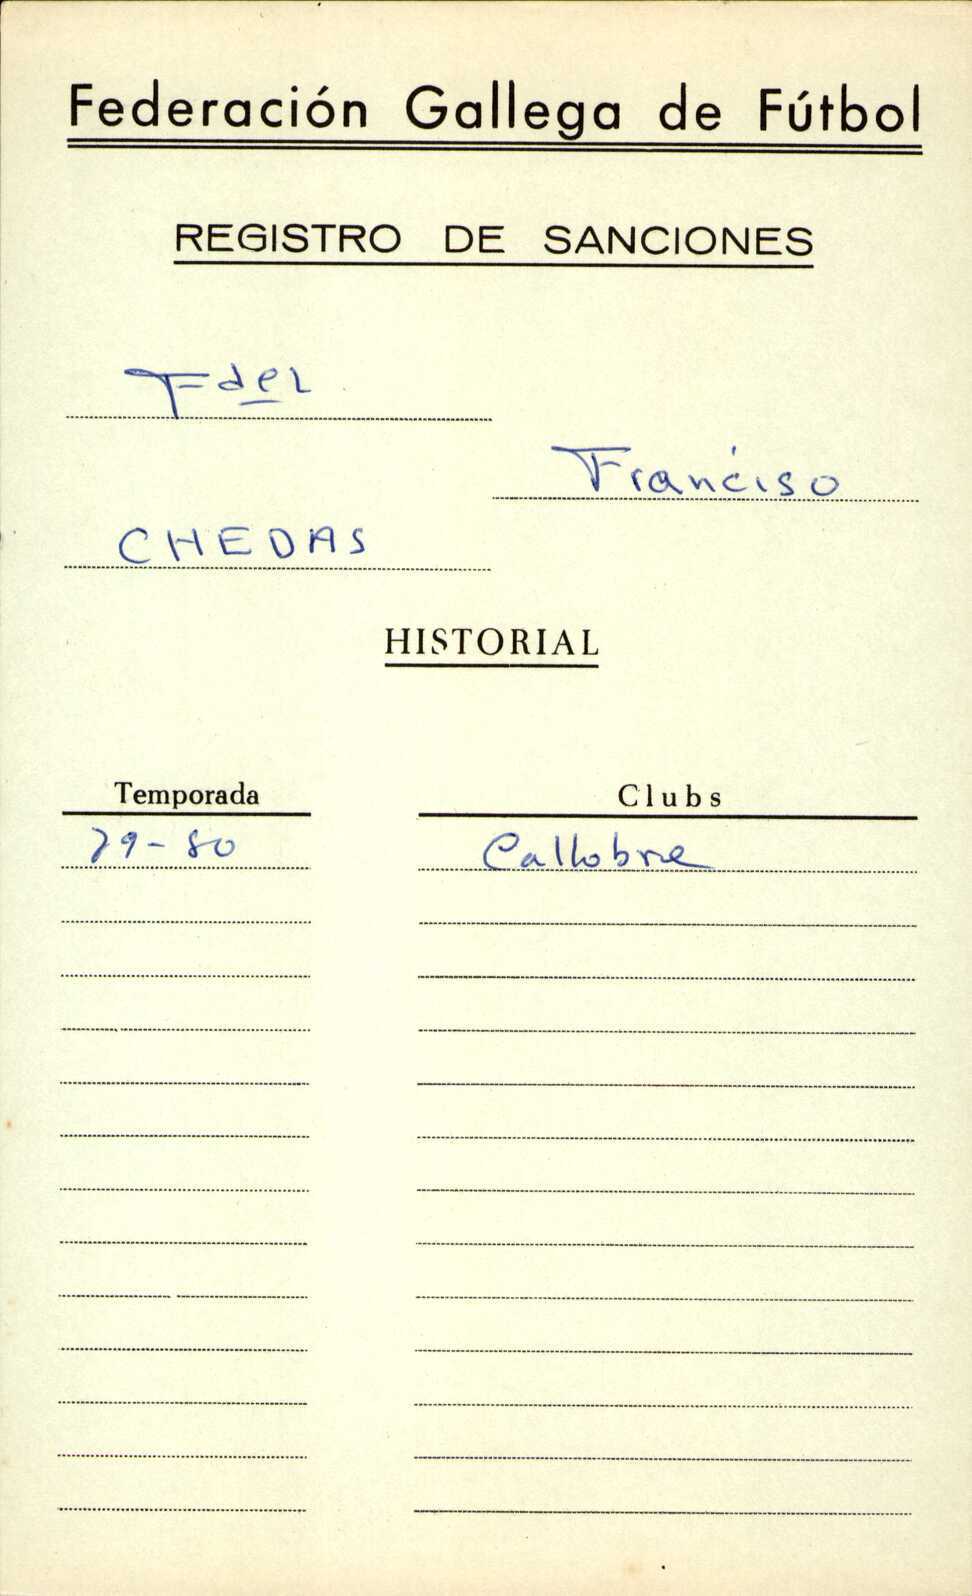 Federación Gallega de Fútbol
REGISTRO DE SANCIONES
Fdez
Franciso
CHEDAS
HISTORIAL
Temporada Clubs
79-80 Callobre